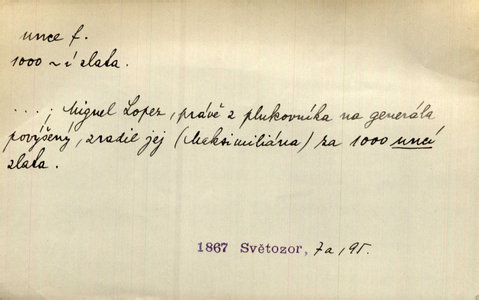 unce f.
1000 ~í zlata.
....; Miguel Lopez, právě z plukovníka na generála
povýšený, zradil jej (Meksimiliána) za 1000 uncí
zlata.
1867 Světozor, 7a, 95.